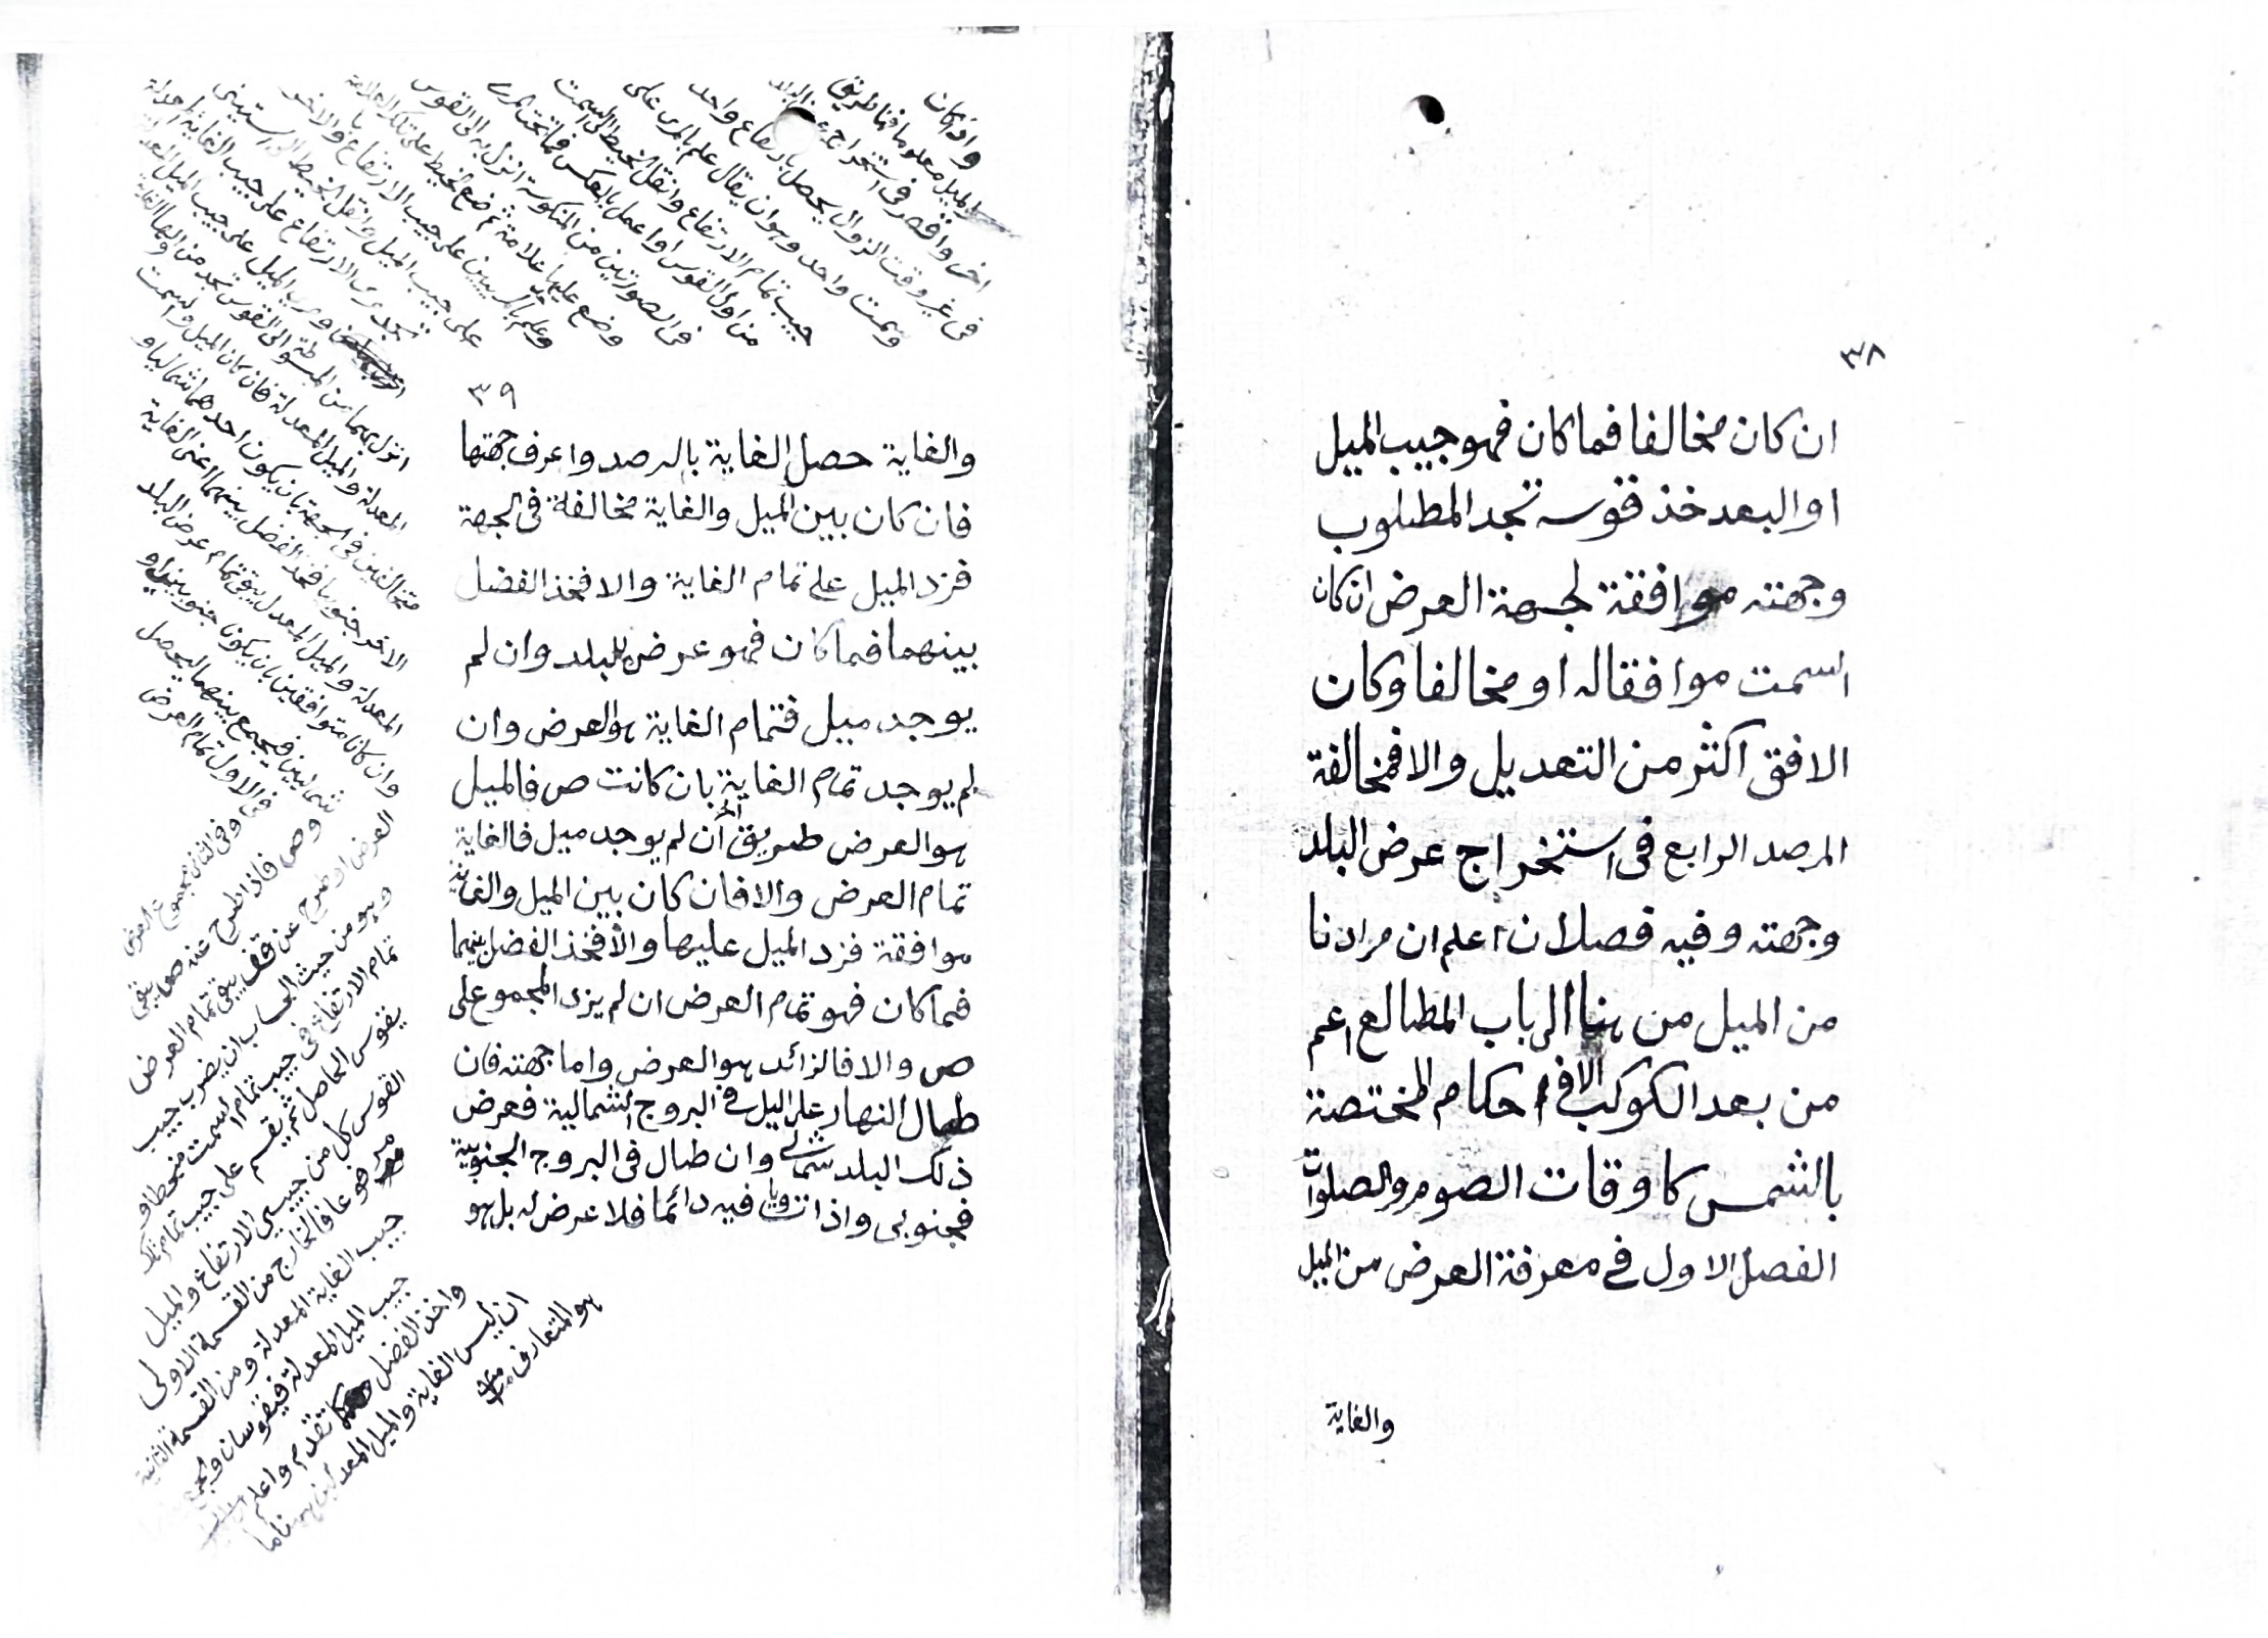 ٣٨
ان كان مخالفا فما كان فهو جيب الميل
او البعد خذ قوسه تجد المطلوب
وجهته موافقة لجهة العرض ان كان
السمت موافقا له او مخالفا وكان
الافق اكثر من التعديل والا فمخالفة
المرصد الرابع فى استخراج عرض البلد
وجهته وفيه فصلان اعلم ان مرادنا
من الميل من هنا الى باب المطالع اعم
من بعد الكوكب الا فى احكام المختصة
بالشمس كاوقات الصوم والصلوات
الفصل الاول فى معرفة العرض من الميل
والغاية
٣٩
والغاية حصل الغاية بالرصد واعرف جهتها
فان كان بين الميل والغاية مخالفة فى الجهة
فزد الميل على تمام الغاية والا فخذ الفضل
بينهما فما كان فهو عرض البلد وان لم
يوجد ميل فتمام الغاية هو العرض وان
لم يوجد تمام الغاية بان كانت ص فالميل
هو العرض طريق آخر ان لم يوجد ميل فالغاية
تمام العرض والا فان كان بين الميل والغاية
موافقة فزد الميل عليها والا فخذ الفضل بينهما
فما كان فهو تمام العرض ان لم يزد المجموع على
ص والا فالزائد هو العرض واما جهته فان
طال النهار على الليل فى البروج الشمالية فعرض
ذلك البلد شمالى وان طال فى البروج الجنوبية
فجنوبى واذا تساويا فيه دائما فلا عرض له بل هو
واذا كان
الميل معلوما فما طريق
اخر وا فى استخراج عرض البلد
فى غير وقت الزوال يحصل بارتفاع واحد
وسمت واحد وهو ان يقال علم بالمرى على
جيب تمام الارتفاع وانقل الخيط الى السمت
من اول القوس او اعمل بالعكس فما تحت المرى
فى الصورتين من المنكوسة انزل به الى القوس
وضع عليها علامة ثم ضع الخيط على تلك العلامة
وعلم بالمريين على جيب الارتفاع والاخر
على جيب الميل وانقل الخيط الى الستينى
تجد مرى الارتفاع على جيب الغاية المعدلة
ومرى الميل على جيب الميل المعدل
انزل بهما من المبسوطة الى القوس تجد من
المعدلة والميل المعدلة فان كان الميل والسمت
متخالفين فى الجهة بان يكون احدهما شماليا و
الاخر جنوبيا فخذ الفضل بينهما اعنى الغاية
المعدلة والميل المعدل يبق تمام عرض البلد
وان كانا متوافقين بان يكونا جنوبيين او
شماليين فيجمع بينهما ليحصل
فى الاول تمام العرض
وفى الثانى مجموع العرض
وص فاذا طرح عنه ص يبقى
العرض او طرح عن قف يبقى تمام العرض
وهو من حيث الحساب ان يضرب جيب
تمام الارتفاع فى جيب تمام السمت منحطا و
يقوس الحاصل ثم يقسم على جيب تمام تلك
القوس كل من جيبى الارتفاع والميل
مرفوعا فالخارج من القسمة الاولى
جيب الغاية المعدلة ومن القسمة الثانية
جيب الميل المعدلة فيقوسان
واخذ الفضل كما تقدم واعلم
ان ليس الغاية والميل المعدلين هنا ما
هو المتعارف منه